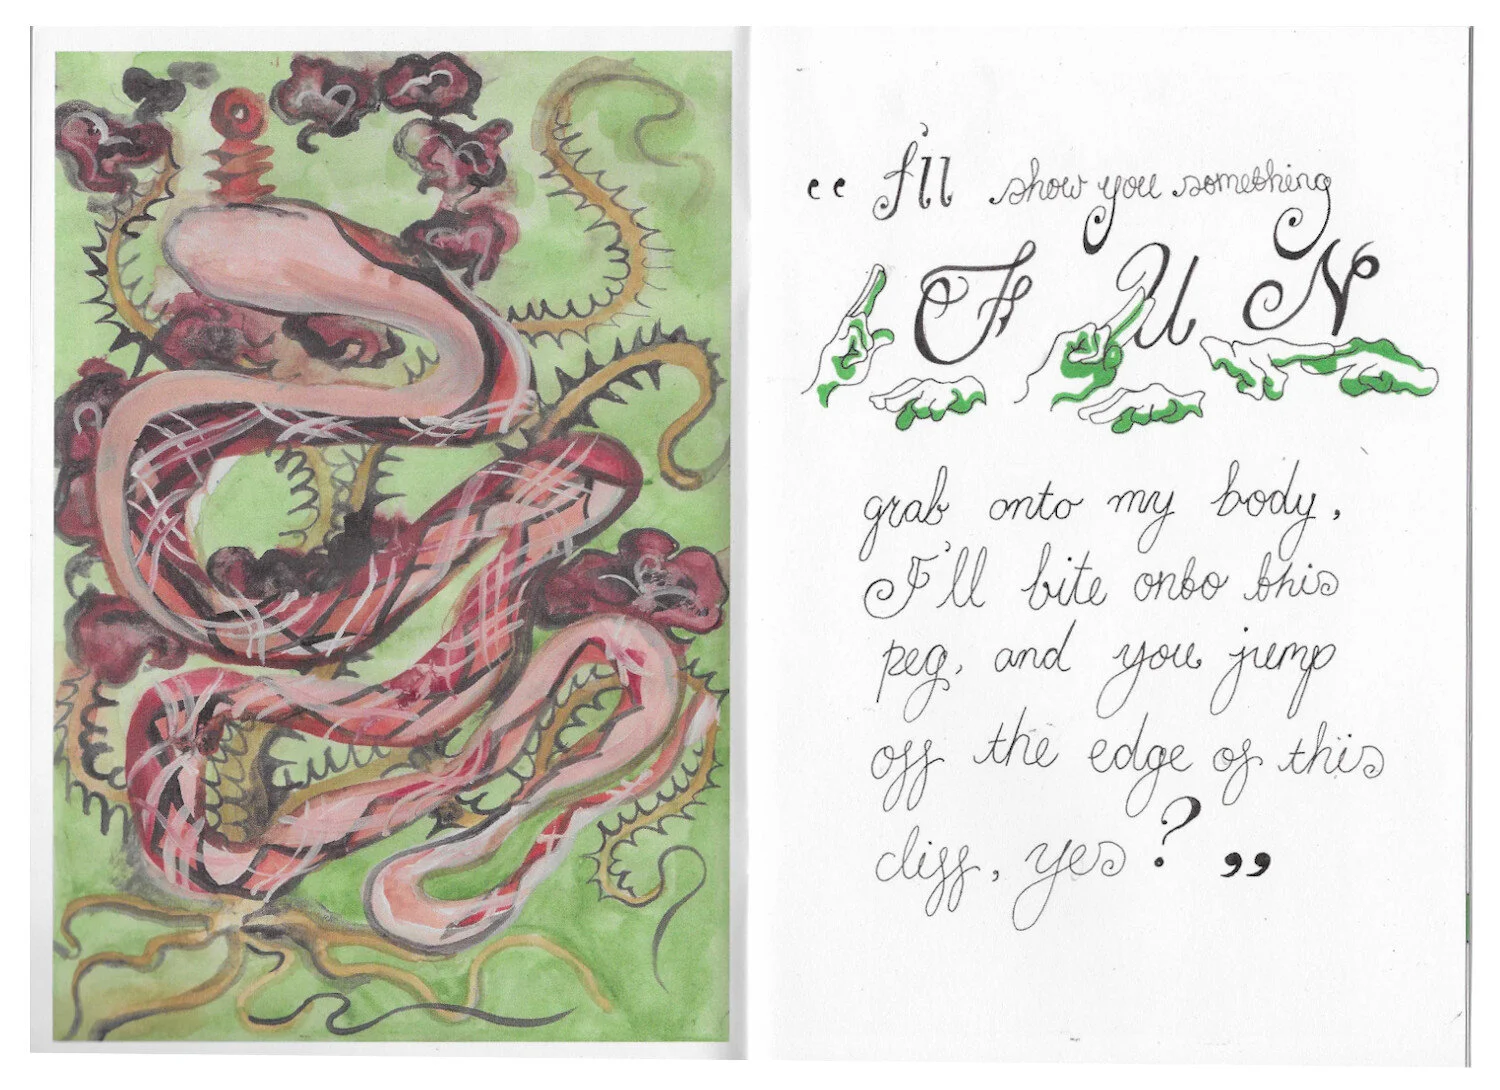 “ I'll show you something
FUN
grab onto my body,
I'll bite onto this
peg, and you jump
off the edge of this
cliff, yes? ”